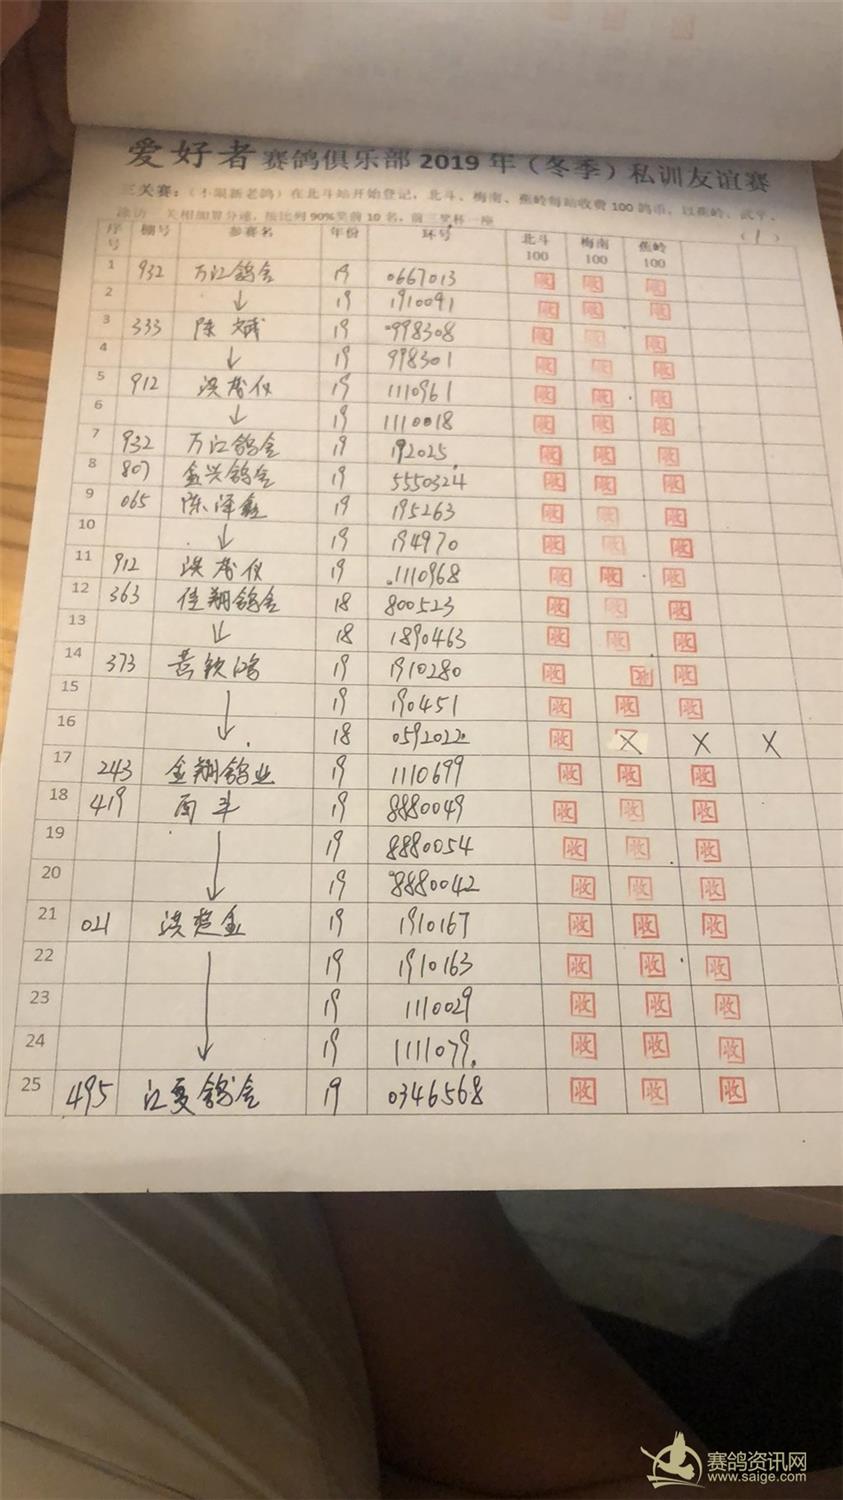 爱好者赛鸽俱乐部2019年（冬季）私训友谊赛
三关赛：（不限新老鸽）在北斗站开始登记，北斗、梅南、蕉岭每站收费100鸽币，以蕉岭、武平、
关相加算分速，按比列90%奖前10名，前三奖杯一座
（1）
序号 棚号 参赛名 年份 环号 北斗100 梅南100 蕉岭100
1 932 万江鸽舍 19 0667013 收 收 收
2 ↓ 19 1910091 收 收 收
3 333 陈斌 19 998308 收 收 收
4 ↓ 19 998301 收 收 收
5 912 洪 仪 19 1110961 收 收 收
6 ↓ 19 1110018 收 收 收
7 932 万江鸽舍 19 192025 收 收 收
8 807 金兴鸽舍 19 5550324 收 收 收
9 065 陈泽鑫 19 195263 收 收 收
10 ↓ 19 194970 收 收 收
11 912 洪 仪 19 1110968 收 收 收
12 363 佳翔鸽舍 18 800523 收 收 收
13 ↓ 18 1890463 收 收 收
14 373 黄钦鸿 19 1910280 收 收 收
15 19 190451 收 收 收
16 ↓ 18 0592022 收 X X X
17 243 金翔鸽业 19 1110699 收 收 收
18 419 南斗 19 8880049 收 收 收
19 19 8880054 收 收 收
20 ↓ 19 8880042 收 收 收
21 021 洪楚金 19 1910167 收 收 收
22 19 1910163 收 收 收
23 19 1110029 收 收 收
24 ↓ 19 1111079 收 收 收
25 495 江夏鸽舍 19 0346568 收 收 收
赛鸽资讯网
www.saige.com